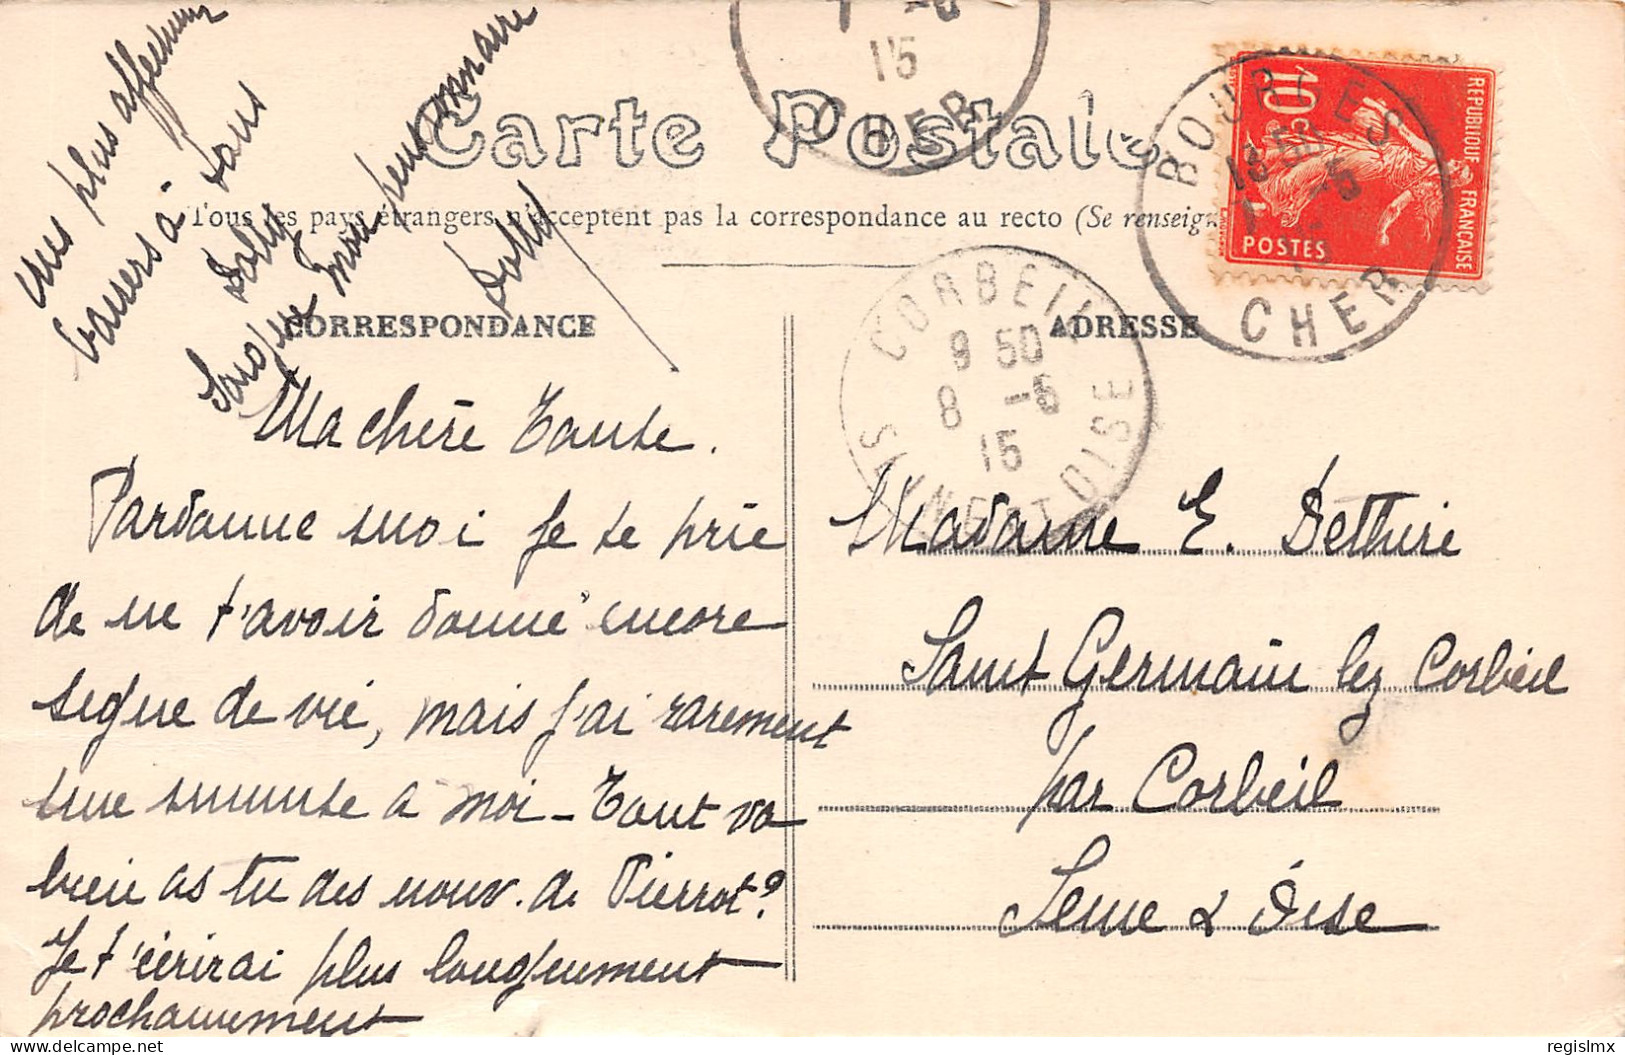 Carte Postale
Tous les pays étrangers n'acceptent pas la correspondance au recto (Se renseign
CORRESPONDANCE
ADRESSE
15
CHER
BOURGES
CHER
REPUBLIQUE FRANÇAISE
10c
POSTES
CORBEIL
9 50
8 -5
15
SEINE ET OISE
Ma chère Tante.
Pardonne moi je te prie
de ne t'avoir donné encore
signe de vie, mais j'ai rarement
une minute à moi - Tout va
bien as tu des nouv. de Pierrot?
Je t'écrirai plus longuement
prochainement
mes plus affectueux
baisers à tous
Dolly
mon pensionnaire
Dolly
Madame E. Dethire
Saint Germain lez Corbeil
par Corbeil
Seine & Oise
regislmx
delcampe.net